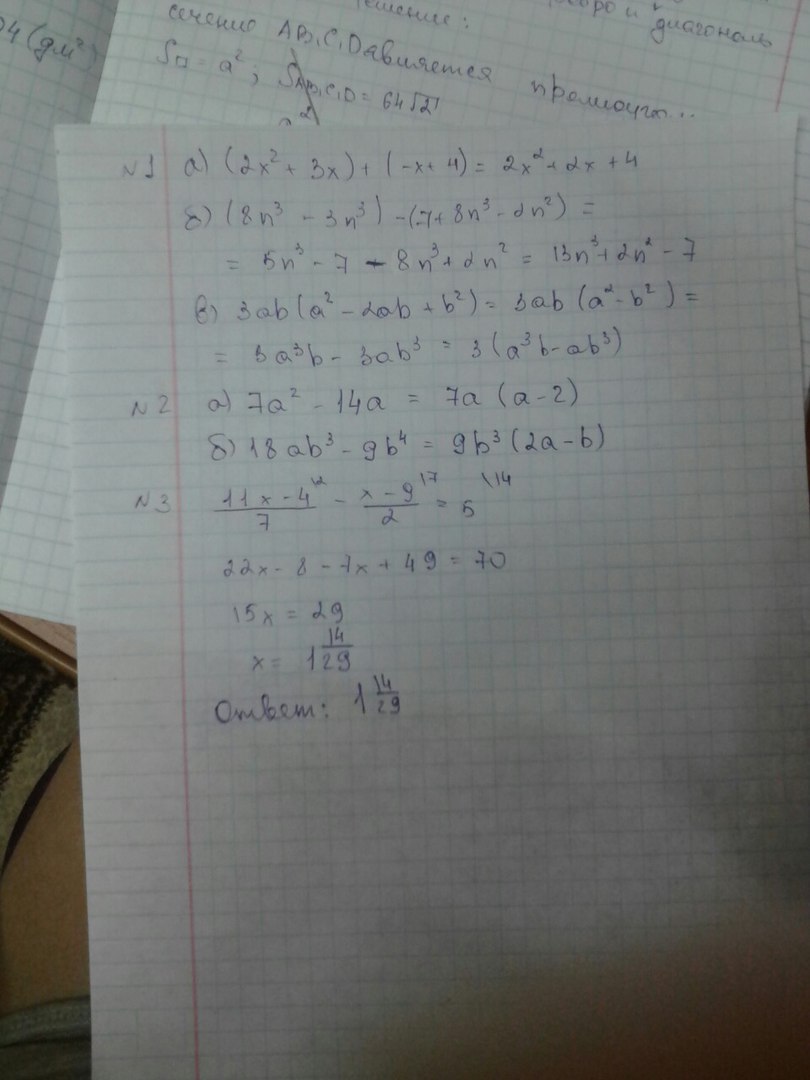 04 (дм²)
решение:
и диагональ
сечение AB₁C₁D является прямоуг...
S□ = a²; SAB₁C₁D = 64√2
№1 а) (2x² + 3x) + (-x + 4) = 2x² + 2x + 4
б) (8n³ - 3n³) - (7 + 8n³ - 2n²) =
= 5n³ - 7 - 8n³ + 2n² = 13n³ + 2n² - 7
в) 3ab (a² - 2ab + b²) = 3ab (a² - b²) =
= 3a³b - 3ab³ = 3(a³b - ab³)
№2 а) 7a² - 14a = 7a (a - 2)
б) 18ab³ - 9b⁴ = 9b³ (2a - b)
№3 11x - 4 \2 / 7 - x - 9 \7 / 2 = 5 \14
22x - 8 - 7x + 49 = 70
15x = 29
x = 1 14/29
Ответ: 1 14/29